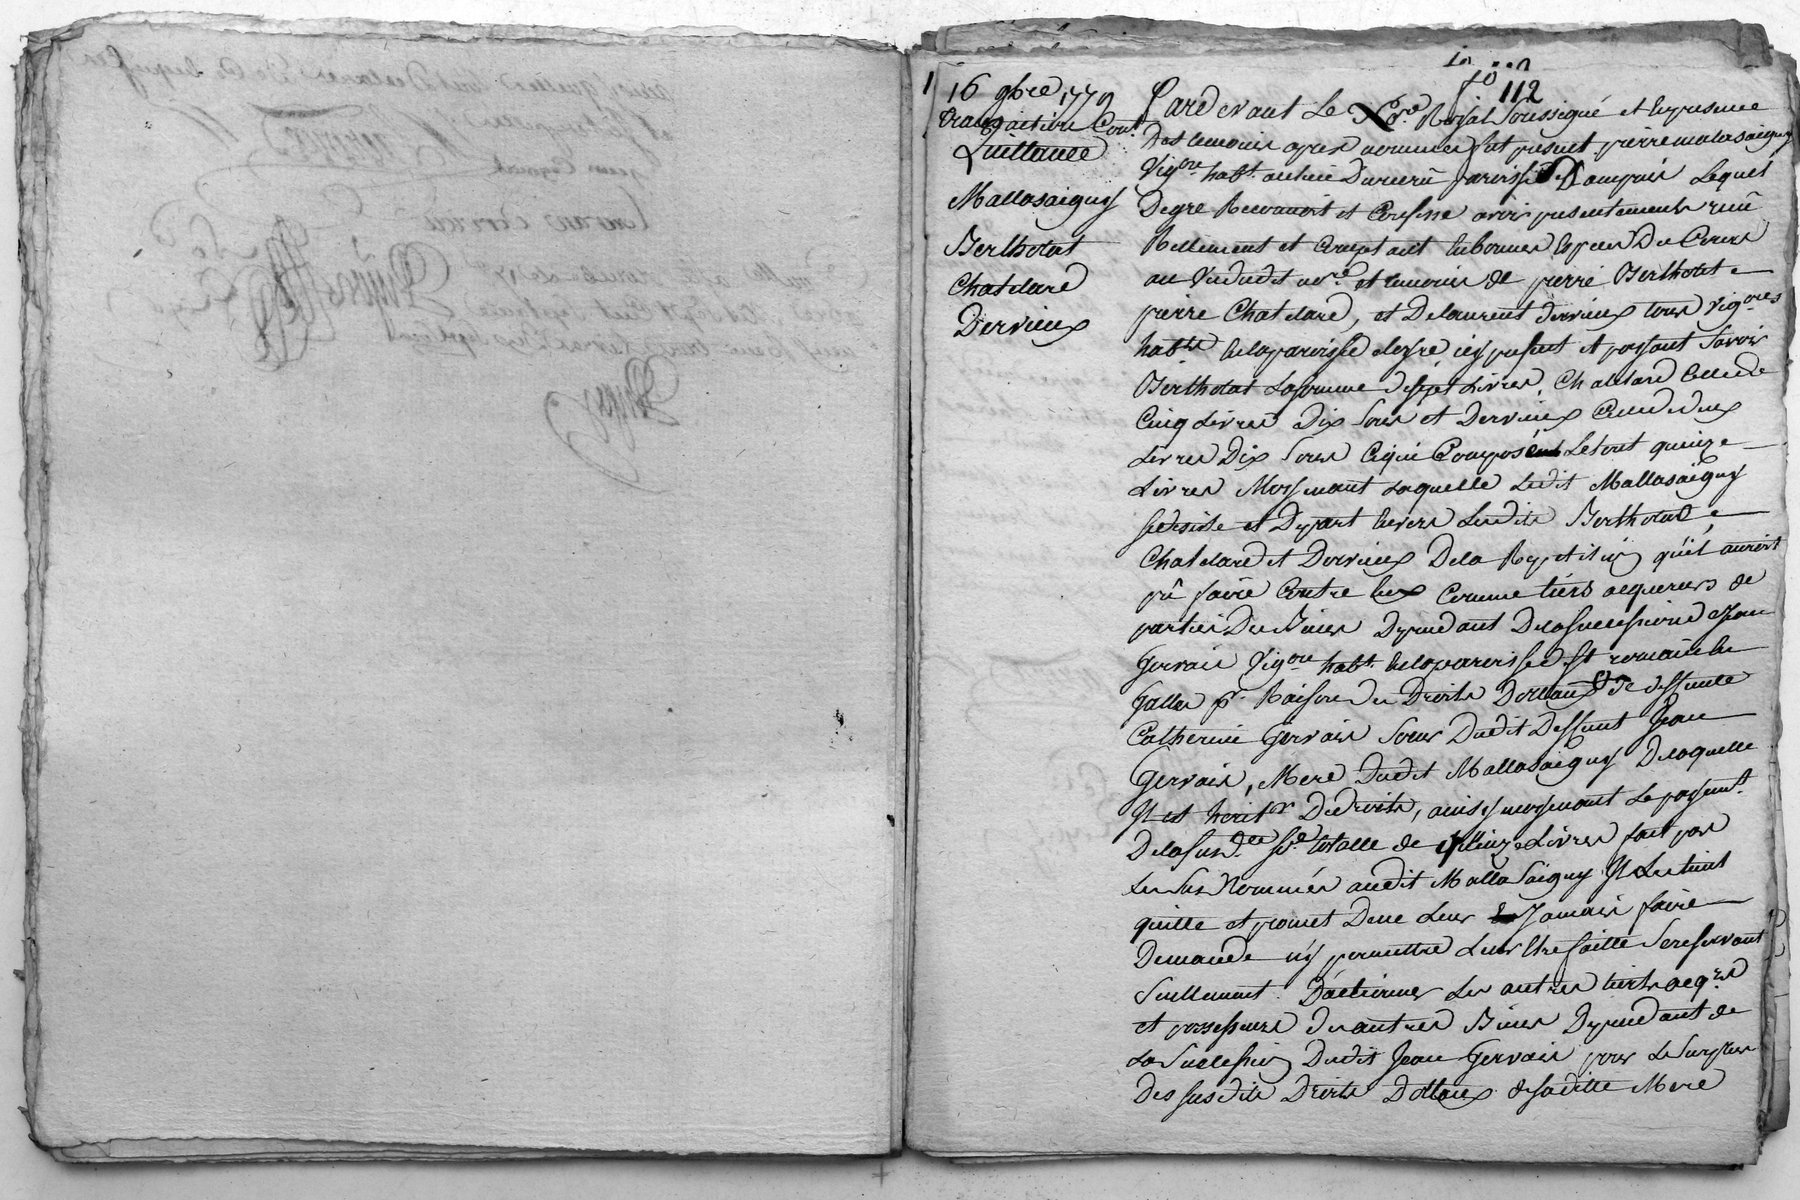 fo 112
1
16 9bre 1779
transaction Cont
Quittance
Mallasaigny
Bertholat
Chatelard
Dervieux
Pardevant Le Nre Royal Soussigné et En presence
Des temoins apres nommes fut present pierre malasaigny
Vigon habt. au lieu paroisse Lequel
De gré Reconnoit et Confesse avoir presentement reçu
Rellement et Comptant En bonnes Especes Du Cours
au Vu dudit nre et temoins de pierre Bertholat
pierre Chatelard, et De laurent dervieux tous Vignes
habts En la paroisse icy present et payant Savoir
Bertholat La somme de sept Livres, Chatelard Celle de
Cinq Livres Dix Sous et Dervieux Celle de deux
Livres Dix Sous Ce qui Composent Le tout quinze
Livres Moyenant Laquelle Ledit Mallasaigny
se desiste et Depart Envers Lesdits Bertholat
Chatelard et Dervieux De la Repetition qu'il auroit
pû faire Contre Eux Comme tiers acquereurs de
partie Des Biens Dependant De la succession de Jean
Gervais Vigon habt. En la paroisse de St romain
Galles pr. Raison des Droits Dottaux de deffunte
Catherine Gervais Soeur Dudit Deffunt Jean
Gervais, Mere Dudit Mallasaigny De laquelle
Il est heritr De droits, ainsy moyenant Le payemt.
De la susdee so totalle de quinze Livres fait par
Les Sus Nommés audit Mallasaigny Il Les tient
quitte et promet De ne Leur Jamais faire
Demande ny permettre Leur Etre faitte Se reservant
Seullement D'actionner Les autres tiers acqrs
et possesseurs des autres Biens Dependant de
La Succession Dudit Jean Gervais pour Le Surplus
Des susdits Droits Dottaux de sa ditte Mere